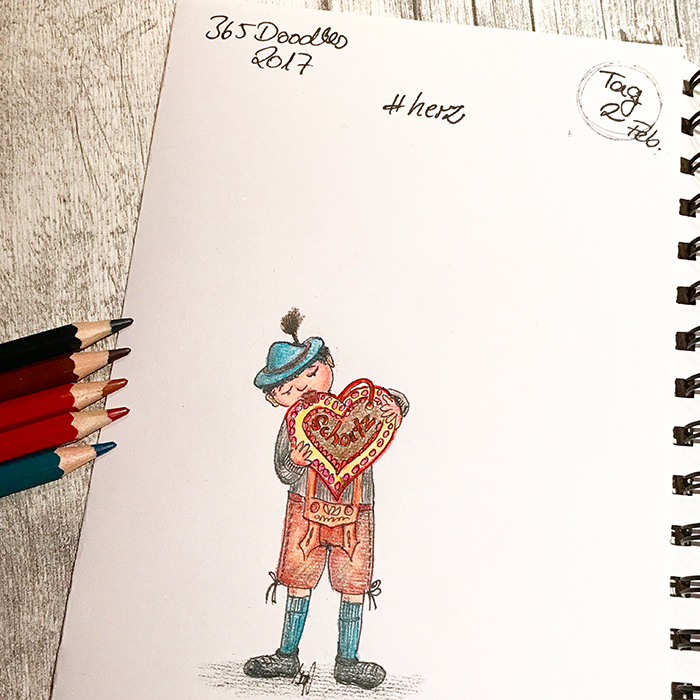 365 Doodles
2017
#herz
Tag
2
Feb.
Schatz